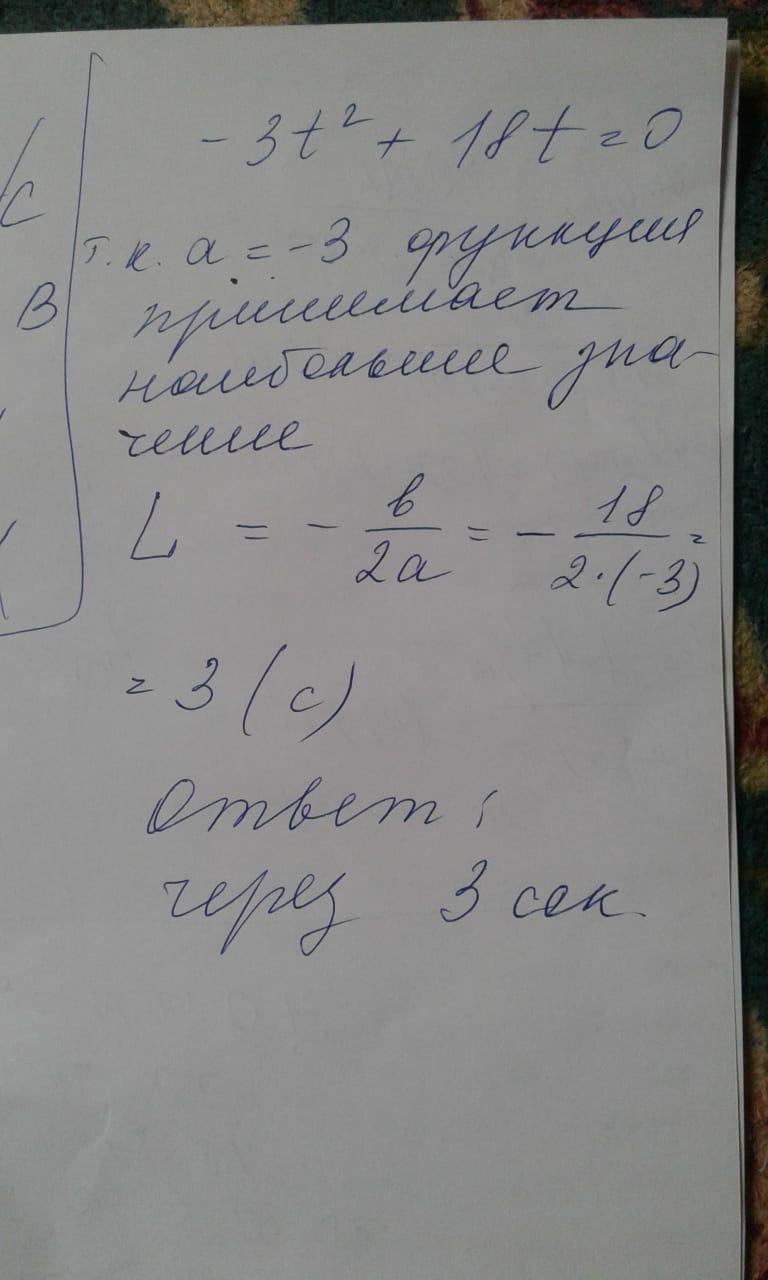 С
В
-3t² + 18t = 0
т.к. a = -3 функция
принимает
наибольшее зна-
чение
L = - b/2a = - 18/2·(-3) =
= 3 (с)
Ответ:
через 3 сек.